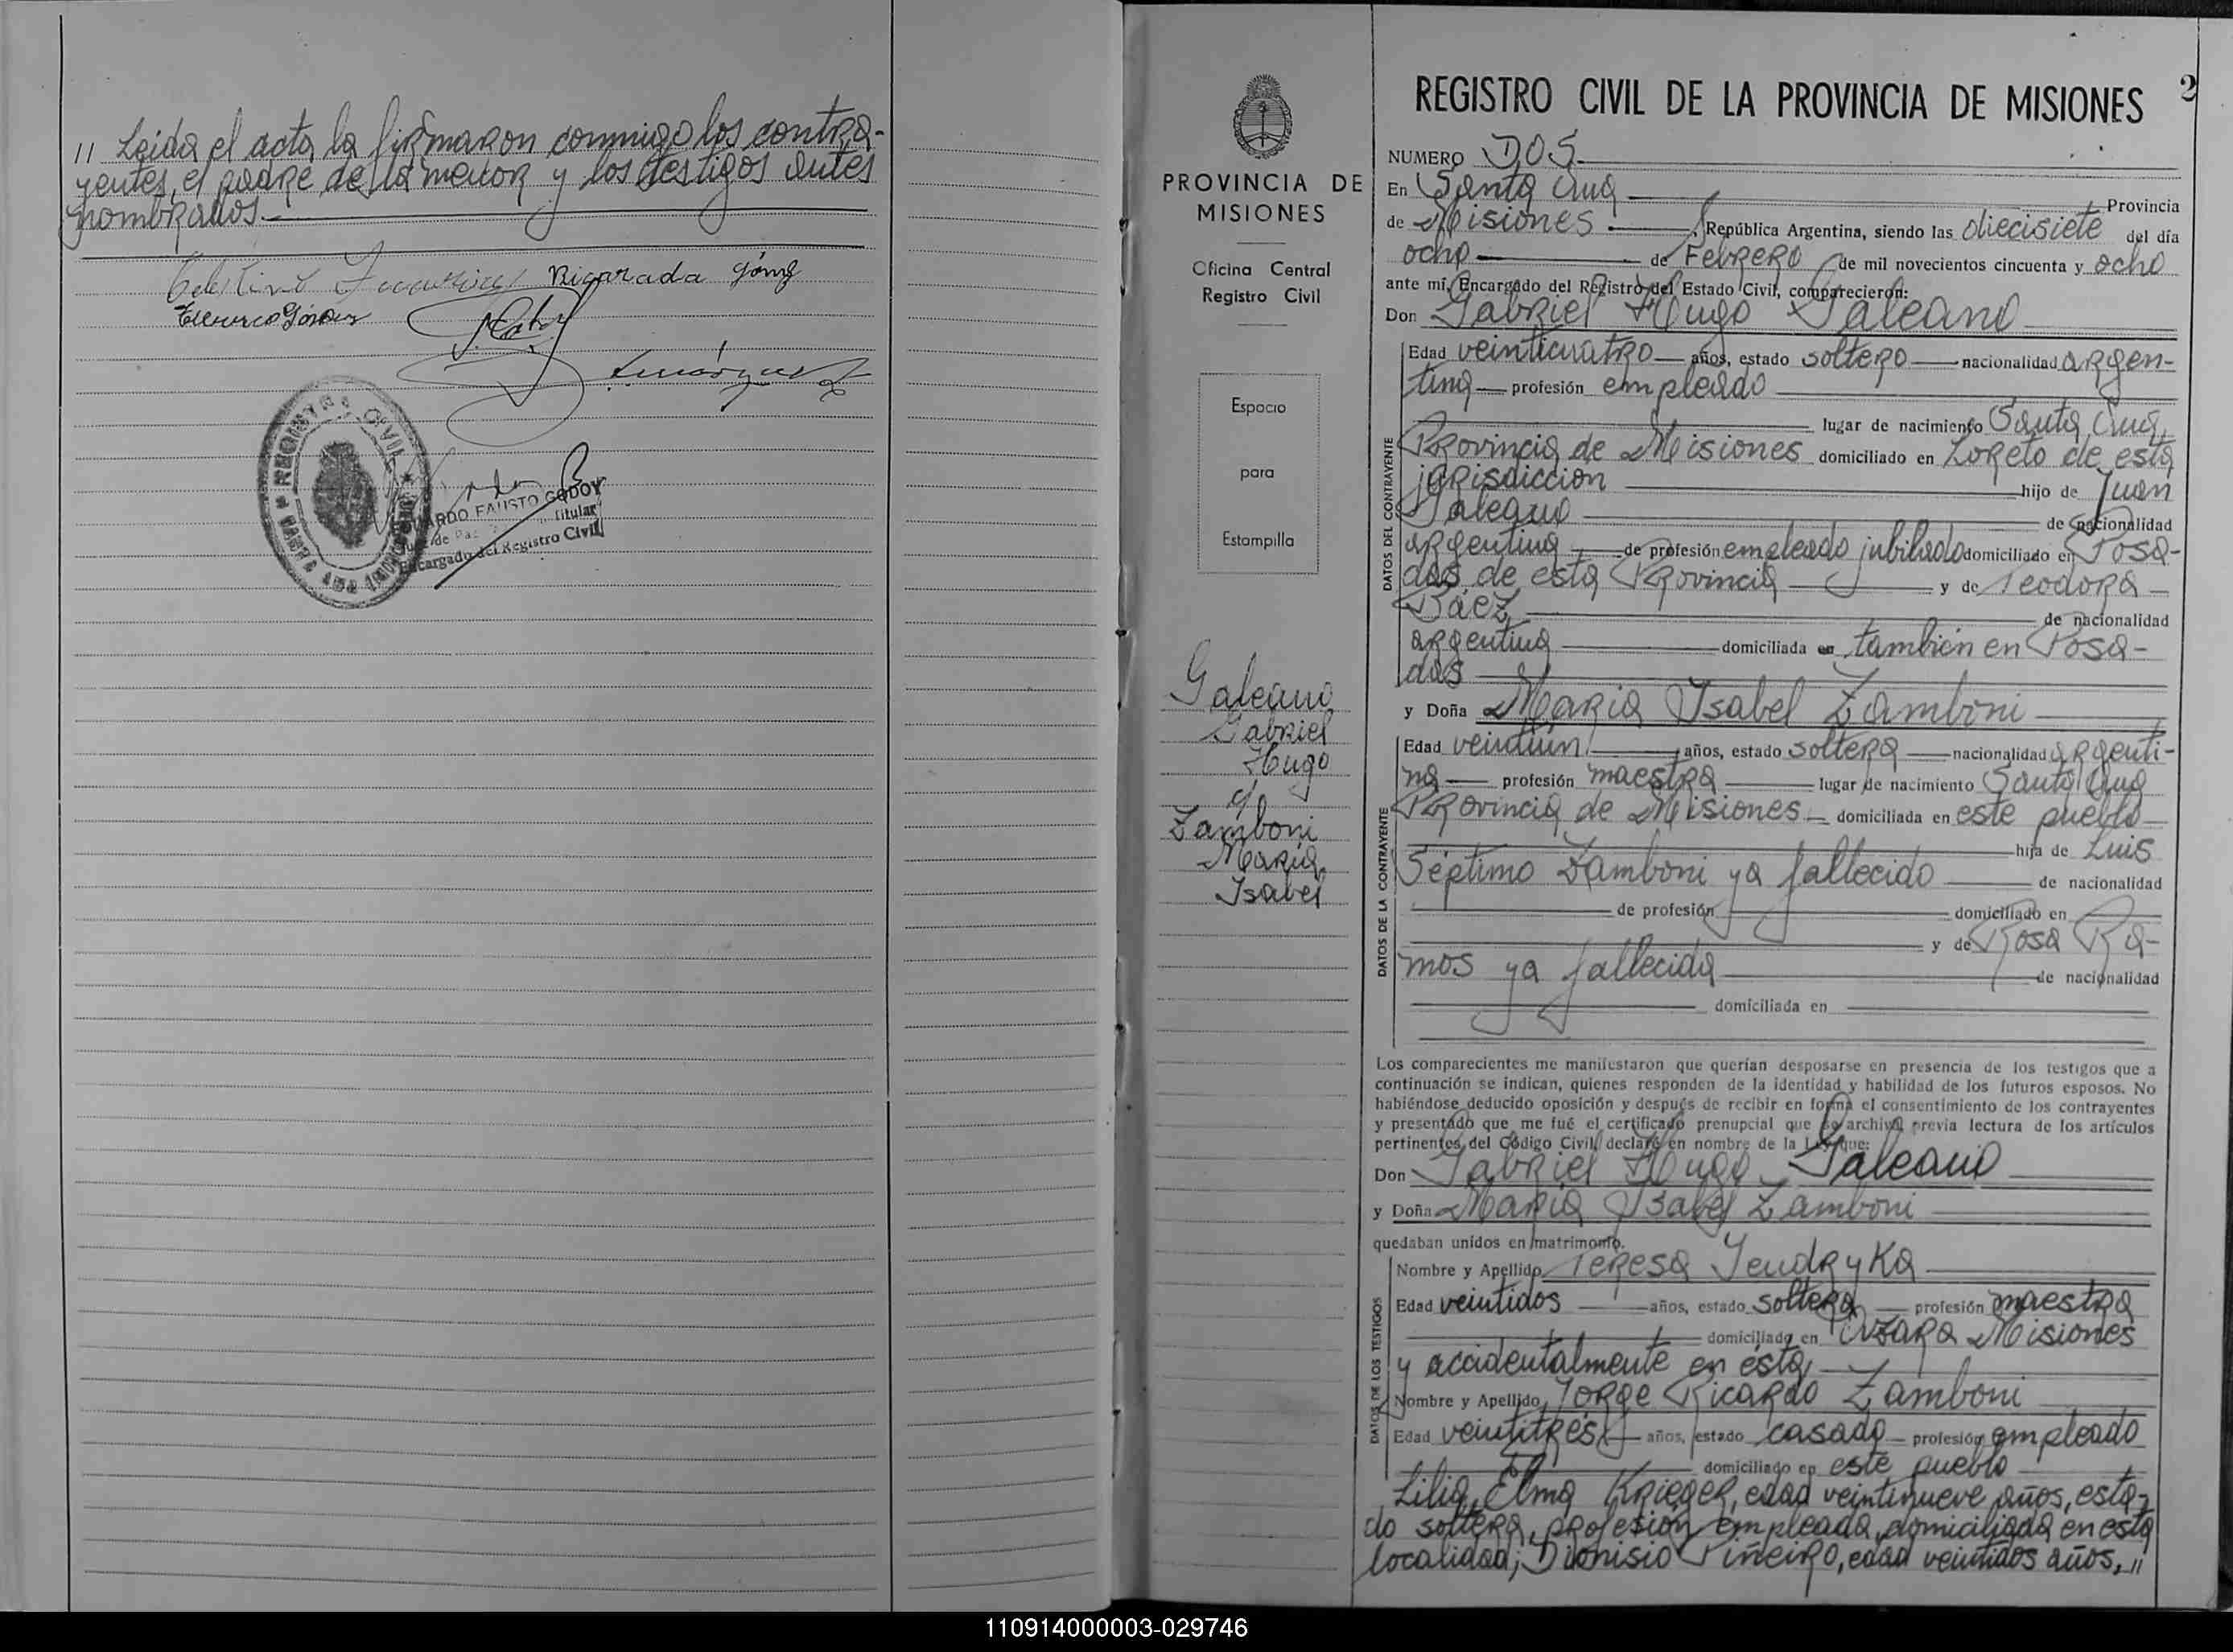 // Leída el acta la firmaron conmigo los contra-
yentes, el padre de la menor y los testigos antes
nombrados.
Ricarada Gómez
REGISTRO CIVIL
FAUSTO GODOY
Titular
de Paz
Encargado del Registro Civil
PROVINCIA DE
MISIONES
Oficina Central
Registro Civil
Espacio
para
Estampilla
Galeano
Gabriel
Hugo
y
Zamboni
María
Isabel
REGISTRO CIVIL DE LA PROVINCIA DE MISIONES 2
NUMERO DOS
En Santa Ana Provincia
de Misiones, República Argentina, siendo las diecisiete del día
ocho de Febrero de mil novecientos cincuenta y ocho
ante mi, Encargado del Registro del Estado Civil, comparecieron:
Don Gabriel Hugo Galeano
Edad veinticuatro años, estado soltero nacionalidad argen-
tina profesión empleado
lugar de nacimiento Santa Ana,
Provincia de Misiones domiciliado en Loreto de esta
jurisdicción hijo de Juan
Galeano de nacionalidad
argentina, de profesión empleado jubilado domiciliado en Posa-
das de esta Provincia y de Teodora
Báez de nacionalidad
argentina domiciliada en también en Posa-
das
y Doña María Isabel Zamboni
Edad veintiún años, estado soltera nacionalidad argenti-
na profesión maestra lugar de nacimiento Santa Ana
Provincia de Misiones domiciliada en este pueblo
hija de Luis
Séptimo Zamboni ya fallecido de nacionalidad
de profesión domiciliado en
y de Rosa Ra-
mos ya fallecida de nacionalidad
domiciliada en
DATOS DEL CONTRAYENTE
DATOS DE LA CONTRAYENTE
Los comparecientes me manifestaron que querían desposarse en presencia de los testigos que a
continuación se indican, quienes responden de la identidad y habilidad de los futuros esposos. No
habiéndose deducido oposición y después de recibir en forma el consentimiento de los contrayentes
y presentado que me fué el certificado prenupcial que se archiva previa lectura de los artículos
pertinentes del Código Civil, declaré en nombre de la Ley que:
Don Gabriel Hugo Galeano
y Doña María Isabel Zamboni
quedaban unidos en matrimonio.
DATOS DE LOS TESTIGOS
Nombre y Apellido Teresa Jendryka
Edad veintidos años, estado soltera profesión maestra
domiciliado en Azara Misiones
y accidentalmente en ésta,
Nombre y Apellido Jorge Ricardo Zamboni
Edad veintitrés años, estado casado profesión empleado
domiciliado en este pueblo
Lilia Elma Krieger, edad veintinueve años, esta-
do soltera, profesión empleada, domiciliada en esta
localidad; Dionisio Piñeiro, edad veintidos años, //
110914000003-029746